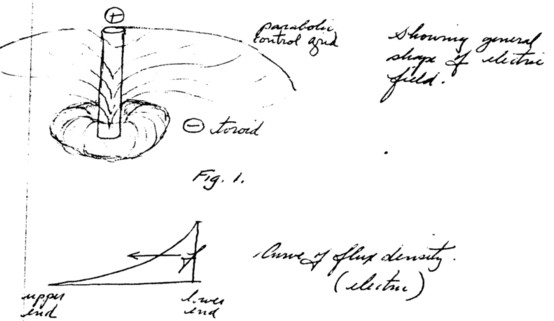 +
parabolic
control grid
Showing general
shape of electric
field.
- toroid
Fig. 1.
Curve of flux density.
(electric)
upper
end
lower
end